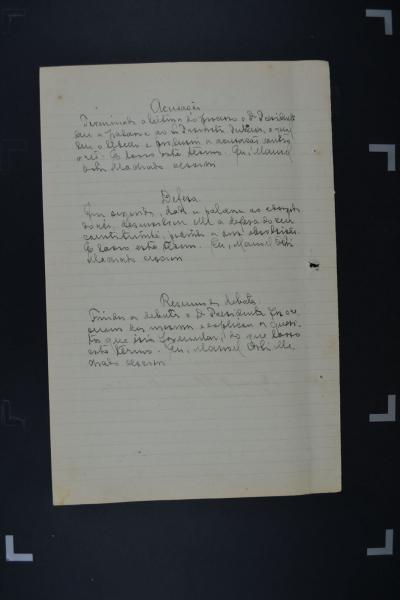 Acusação
Terminada a leitura do processo o Dr Presidente
deu a palavra ao Dr Promotor Publico, o qual
leu o libello e produziu a acusação contra
o réu. Do lavro este termo. Eu, Manoel
Machado escrivão
Defesa
Em seguida, dada a palavra ao
do réu, desenvolveu elle a defesa do seu
constituinte, pedindo a sua absolvição.
Do lavro este termo. Eu, Manoel
Machado escrivão
Resumo dos debates
Findos os debates o Dr Presidente fez o re
sumo dos mesmos e explicou os quesi
tos que iria formular, do que lavro
este termo. Eu, Manoel Ma
chado escrivão